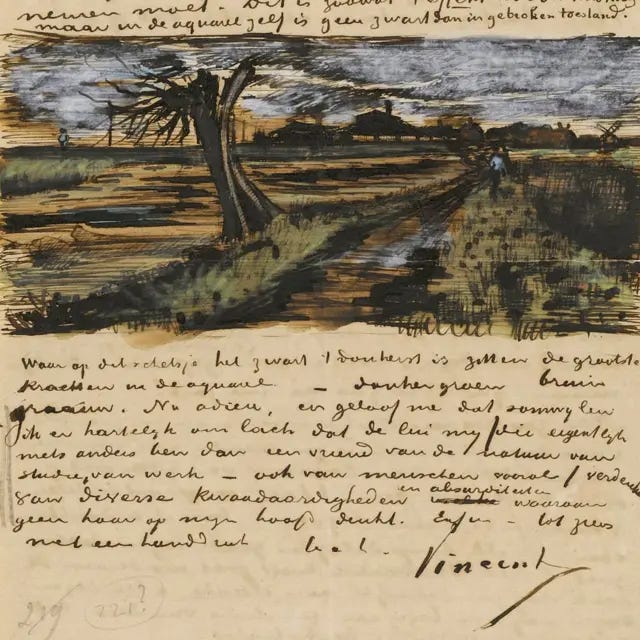 nemen moet. Dit is
maar in de aquarel zelf is geen zwart dan in gebroken toestand.
Waar op dit schetsje het zwart 't donkerst is zitten de grootste
krachten in de aquarel — donkergroen bruin
graauw. Nu adieu, en geloof me dat somwylen
ik er hartelyk om lach dat de lui my (die eigentlyk
niets anders ben dan een vriend van de natuur van
studie, van werk — ook van menschen vooral) verdenk
van diverse kwaadaardigheden en absurditeiten waaraan
geen haar op myn hoofd denkt. Enfin — tot ziens
met een handdruk t. à t.
Vincent
219
221?